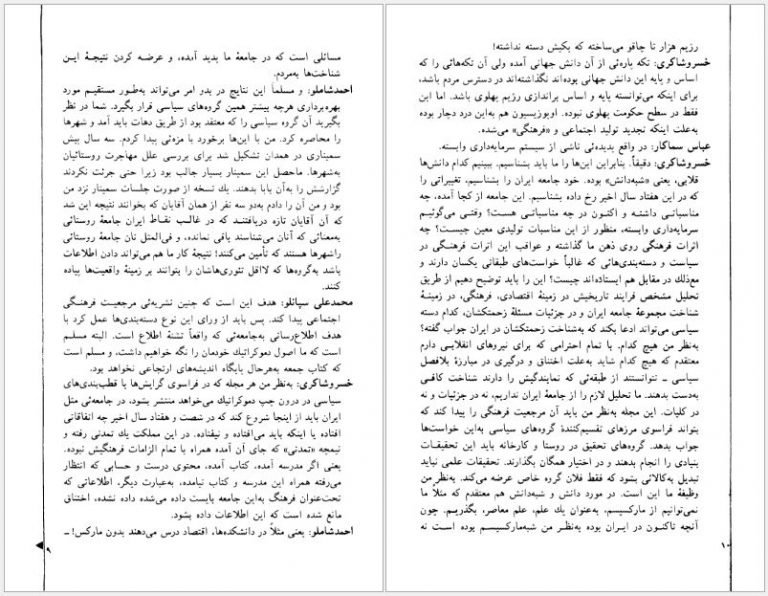 مسائلی است که در جامعهٔ ما پدید آمده، و عرضه کردن نتیجهٔ این
شناخت‌ها به‌مردم.
احمدشاملو: و مسلماً این نتایج در بدو امر می‌تواند به‌طور مستقیم مورد
بهره‌برداری هرچه بیشتر همین گروه‌های سیاسی قرار بگیرد. شما در نظر
بگیرید آن گروه سیاسی را که معتقد بود از طریق دهات باید آمد و شهرها
را محاصره کرد. من با این‌ها برخورد با مزه‌ئی پیدا کردم. سه سال پیش
سمیناری در همدان تشکیل شد برای بررسی علل مهاجرت روستائیان
به‌شهرها. ماحصل این سمینار بسیار جالب بود زیرا حتی جرئت نکردند
گزارشش را به‌آن بابا بدهند. یك نسخه از صورت جلسات سمینار نزد من
بود و من آن را دادم به‌دو سه نفر از همان آقایان که بخوانند نتیجه این شد
که آن آقایان تازه دریافتند که در غالب نقاط ایران جامعهٔ روستائی
به‌معنائی که آنان می‌شناسند باقی نمانده، و فی‌المثل نان جامعهٔ روستائی
راشهرها هستند که تأمین می‌کنند! نتیجهٔ کار ما هم می‌تواند دادن اطلاعات
باشد به‌گروه‌ها که لااقل تئوری‌هاشان را بتوانند بر زمینهٔ واقعیت‌ها پیاده
کنند.
محمدعلی سپانلو: هدف این است که چنین نشریه‌ئی مرجعیت فرهنگی
اجتماعی پیدا کند. پس باید از ورای این نوع دسته‌بندی‌ها عمل کرد با
هدف اطلاع‌رسانی به‌جامعه‌ئی که واقعاً تشنهٔ اطلاع است. البته مسلم
است که ما اصول دموکراتیك خودمان را نگه خواهیم داشت، و مسلم است
که کتاب جمعه به‌هرحال پایگاه اندیشه‌های ارتجاعی نخواهد بود.
خسروشاکری: به‌نظر من هر مجله که در فراسوی گرایش‌ها یا قطب‌بندی‌های
سیاسی در درون چپ دموکراتیك می‌خواهد منتشر بشود، در جامعه‌ئی مثل
ایران باید از اینجا شروع کند که در شصت و هفتاد سال اخیر چه اتفاقاتی
افتاده یا اینکه باید می‌افتاده و نیفتاده. در این مملکت یك تمدنی رفته و
نیمچه «تمدنی» که جای آن آمده همراه با تمام الزامات فرهنگیش نبوده.
یعنی اگر مدرسه آمده، کتاب آمده، محتوی درست و حسابی که انتظار
می‌رفته همراه این مدرسه و کتاب نیامده، به‌عبارت دیگر، اطلاعاتی که
تحت‌عنوان فرهنگ به‌این جامعه بایست داده می‌شده داده نشده، اختناق
مانع شده است که این اطلاعات داده بشود.
احمدشاملو: یعنی مثلاً در دانشکده‌ها، اقتصاد درس می‌دهند بدون مارکس! ـ
۹
رژیم هزار تا چاقو می‌ساخته که یکیش دسته نداشته!
خسروشاکری: تکه پاره‌ئی از آن دانش جهانی آمده ولی آن تکه‌هائی را که
اساس و پایه این دانش جهانی بوده‌اند نگذاشته‌اند در دسترس مردم باشد،
برای اینکه می‌توانسته پایه و اساس براندازی رژیم پهلوی باشد. اما این
فقط در سطح حکومت پهلوی نبوده. اوپوزیسیون هم به‌این درد دچار بوده
به‌علت اینکه تجدید تولید اجتماعی و «فرهنگی» می‌شده.
عباس سماکار: در واقع پدیده‌ئی ناشی از سیستم سرمایه‌داری وابسته.
خسروشاکری: دقیقاً. بنابراین این‌ها را ما باید بشناسیم. ببینیم کدام دانش‌ها
قلابی، یعنی «شبه‌دانش» بوده. خود جامعه ایران را بشناسیم، تغییراتی را
که در این هفتاد سال اخیر رخ داده بشناسیم. این جامعه از کجا آمده، چه
مناسباتی داشته و اکنون در چه مناسباتی هست؟ وقتی می‌گوئیم
سرمایه‌داری وابسته، منظور از این مناسبات تولیدی معین چیست؟ چه
اثرات فرهنگی روی ذهن ما گذاشته و عواقب این اثرات فرهنگی در
سیاست و دسته‌بندی‌هائی که غالباً خواست‌های طبقاتی یکسان دارند و
مع‌ذلك در مقابل هم ایستاده‌اند چیست؟ این را باید توضیح دهیم از طریق
تحلیل مشخص فرایند تاریخیش در زمینهٔ اقتصادی، فرهنگی، در زمینهٔ
شناخت مجموعهٔ جامعه ایران و در جزئیات مسئلهٔ زحمتکشان، کدام دسته
سیاسی می‌تواند ادعا بکند که به‌شناخت زحمتکشان در ایران جواب گفته؟
به‌نظر من هیچ کدام. با تمام احترامی که برای نیروهای انقلابی دارم
معتقدم که هیچ کدام شاید به‌علت اختناق و درگیری در مبارزهٔ بلافصل
سیاسی ـ نتوانستند از طبقه‌ئی که نمایندگیش را دارند شناخت کافی
به‌دست بدهند. ما تحلیل لازم را از جامعهٔ ایران نداریم، نه در جزئیات و نه
در کلیات. این مجله به‌نظر من باید آن مرجعیت فرهنگی را پیدا کند که
بتواند فراسوی مرزهای تقسیم‌کنندهٔ گروه‌های سیاسی به‌این خواست‌ها
جواب بدهد. گروه‌های تحقیق در روستا و کارخانه باید این تحقیقات
بنیادی را انجام بدهند و در اختیار همگان بگذارند. تحقیقات علمی نباید
تبدیل به‌کالائی بشود که فقط فلان گروه خاص عرضه می‌کند. به‌نظر من
وظیفهٔ ما این است. در مورد دانش و شبه‌دانش هم معتقدم که مثلاً ما
نمی‌توانیم از مارکسیسم، به‌عنوان یك علم، علم معاصر، بگذریم. چون
آنچه تاکنون در ایران بوده به‌نظر من شبه‌مارکسیسم بوده است نه
۱۰